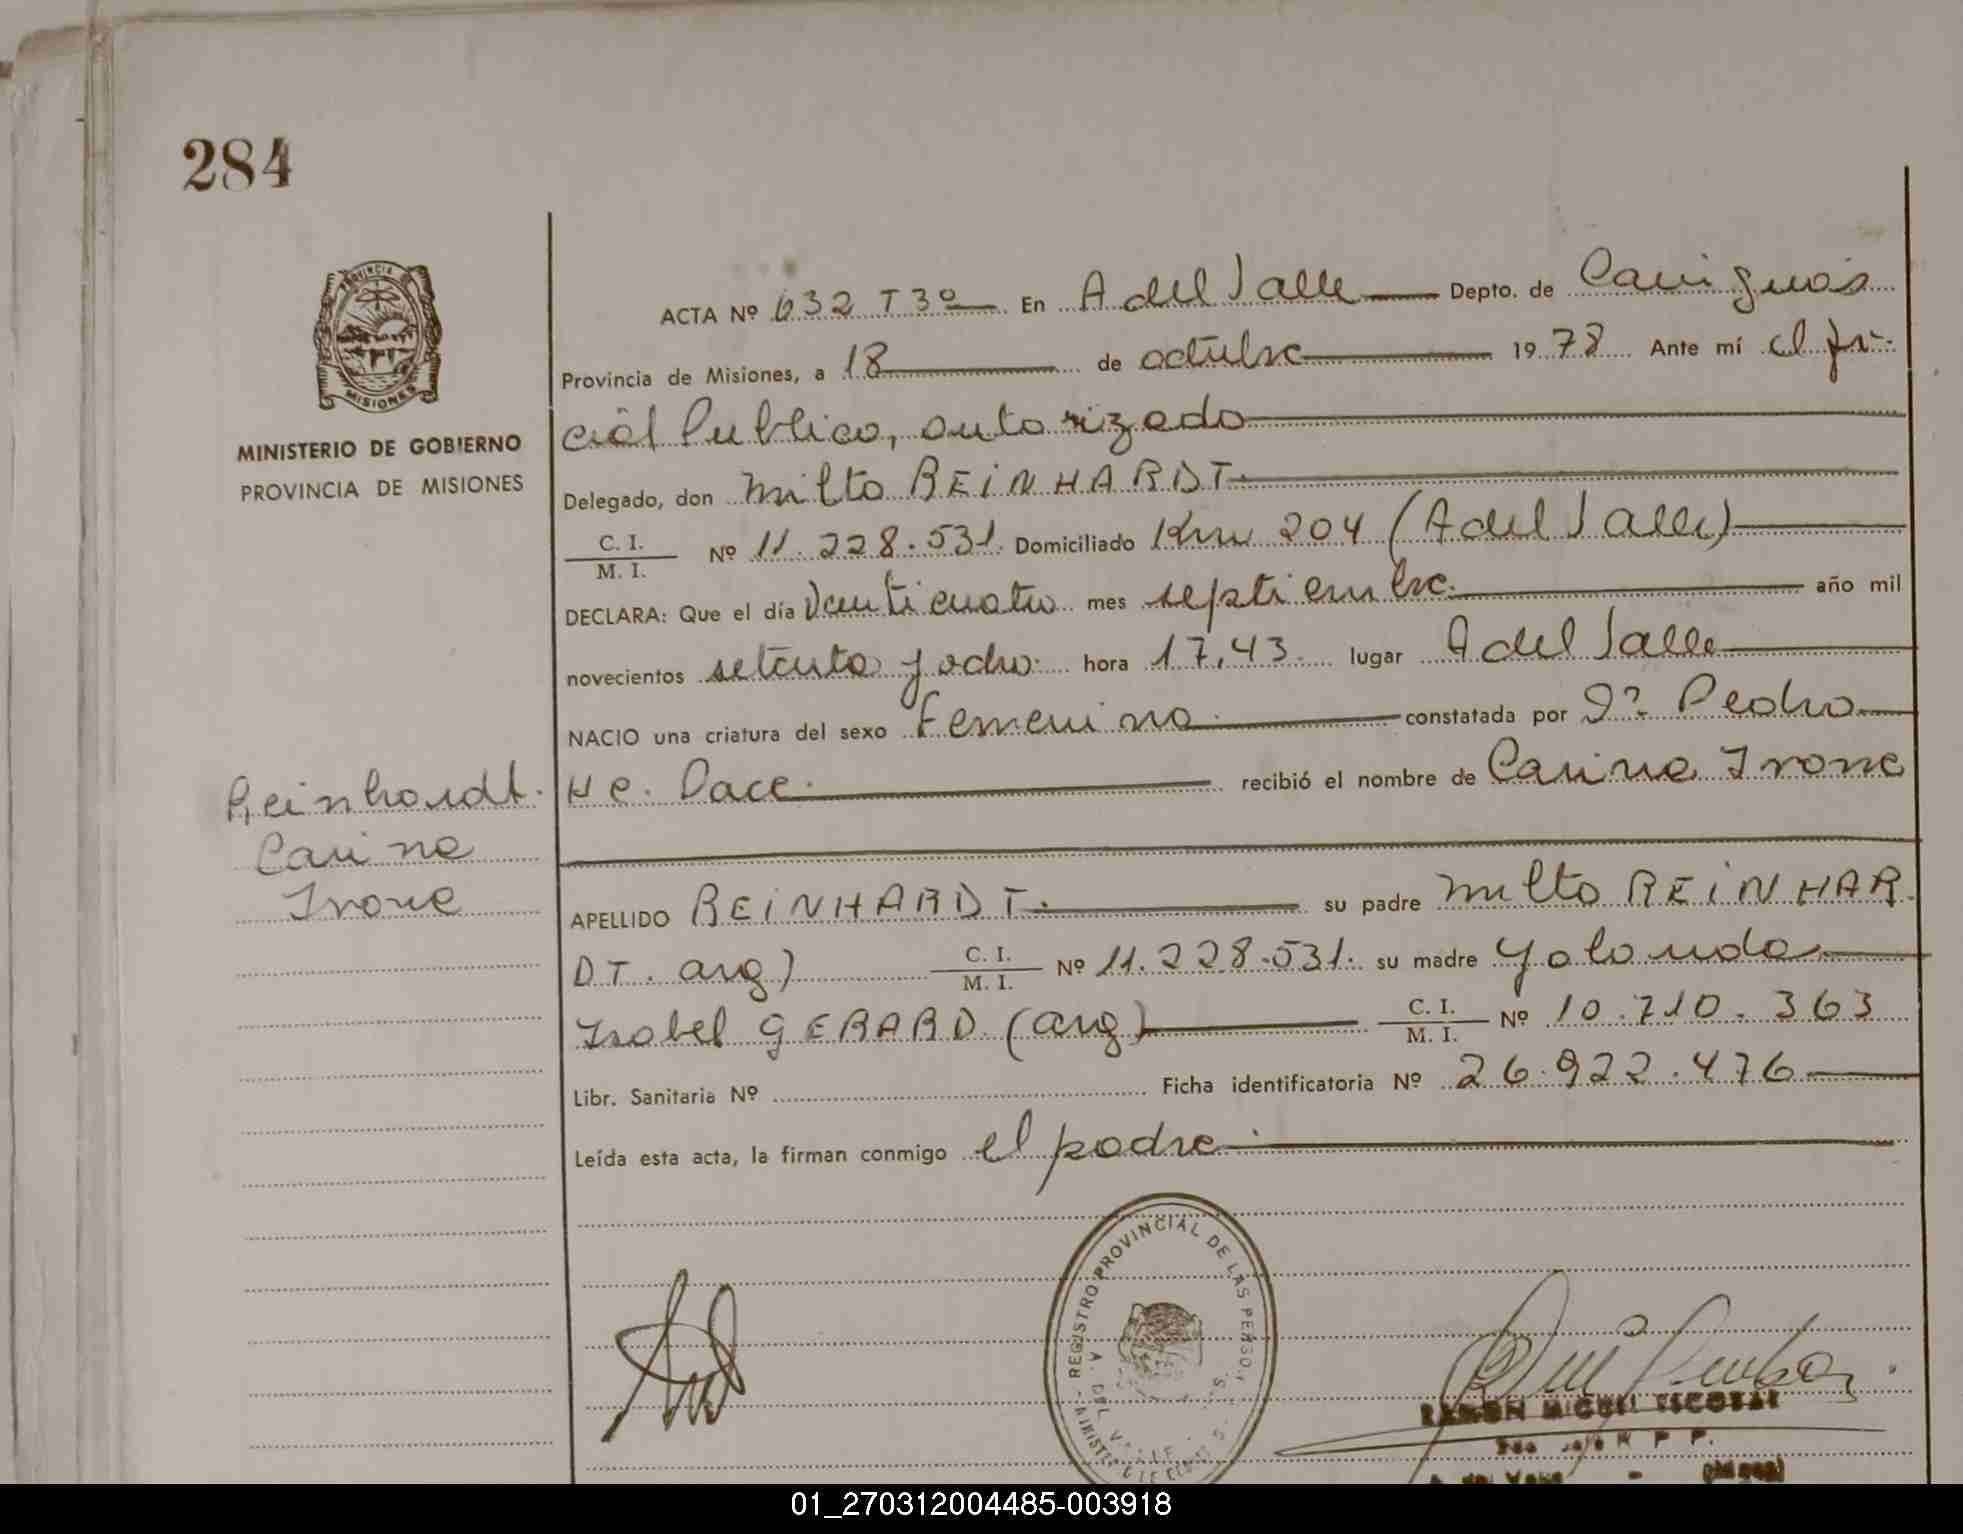 284
PROVINCIA
MISIONES
MINISTERIO DE GOBIERNO
PROVINCIA DE MISIONES
Reinhardt.
Carina
Ivone
ACTA Nº 632 T 3º En A del Valle Depto. de Cainguás
Provincia de Misiones, a 18 de octubre 1978 Ante mí el
cial Publico, autorizado
Delegado, don Milto REINHARDT.
C. I.
M. I. Nº 11.228.531. Domiciliado Km 204 (A del Valle)
DECLARA: Que el día Veinticuatro mes septiembre. año mil
novecientos setenta y ocho. hora 17,43. lugar A del Valle
NACIO una criatura del sexo Femenino. constatada por Pedro
recibió el nombre de Carina Ivone
APELLIDO REINHARDT. su padre Milto REINHAR
DT. arg) C. I.
M. I. Nº 11.228.531. su madre Yolanda
Isabel GERARD (arg) C. I.
M. I. Nº 10.710.363
Libr. Sanitaria Nº Ficha identificatoria Nº 26.922.476
Leída esta acta, la firman conmigo el padre.
REGISTRO PROVINCIAL DE LAS PERSO
A. DEL VALLE
RAMON MIGUEL ESCOBAR
R P P.
01_270312004485-003918